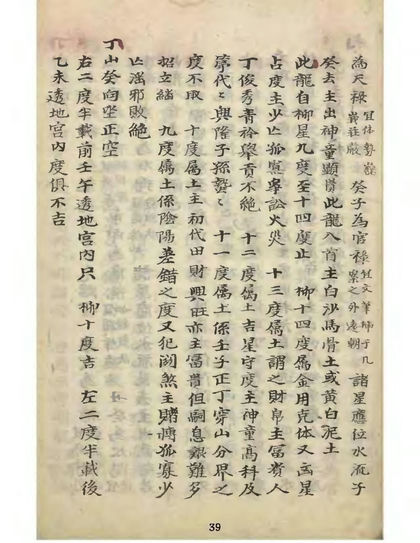 為天祿宜休勢巍峩莊嚴癸子為官祿仗文筆柿于几案之外遠朝諸星應位水流子
癸去主出神童顯貴此龍入首主白沙馬骨土或黃白泥土
此龍自柳星九度至十四度止 柳十四度屬金用克体又凶星
占度主少亡孤寡爭訟火災 十三度屬土謂之財帛主富貴人
丁俊秀青衿舉貢不絕 十二度屬土吉星守度主神童高科及
第代代興隆子孫蟄蟄 十一度屬土係壬子正丁穿山分界之
度不取 十度屬土主初代田財興旺亦主富貴但嗣息艱難多
招立繼 九度屬土係陰陽差錯之度又犯關煞主賭博孤寡少
亡淫邪敗絕
丁山癸向坐正空
右二度半載前壬午透地宮內只 柳十度吉 左二度半載後
乙未透地宮內度俱不吉
39